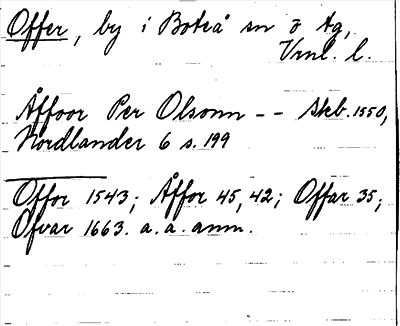 Offer, by i Boteå sn o tg,
Vrnl. l.
Åffoor Per Olsonn -- Skb. 1550,
Nordlander 6 s. 199
Offor 1543; Åffor 45, 42; Offar 35;
Ofvar 1663. a. a. anm.